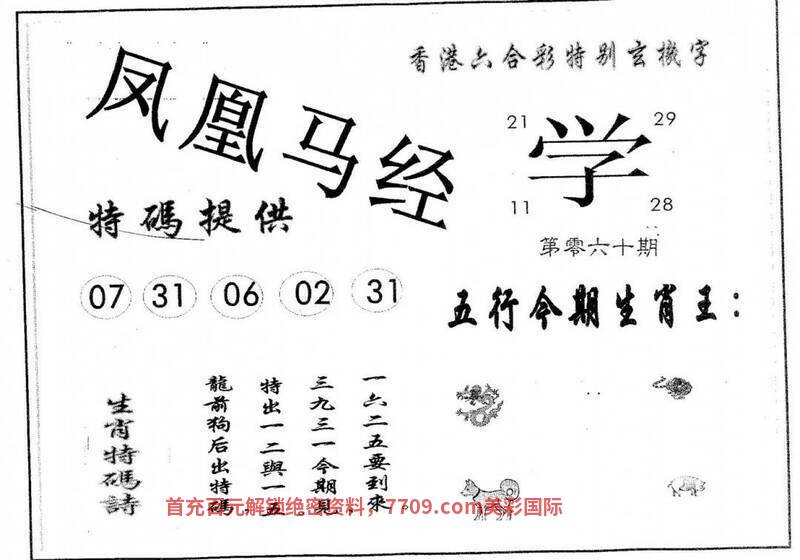 凤凰马经
香港六合彩特别玄機字
21 29
学
11 28
特碼提供
第零六十期
07 31 06 02 31
五行今期生肖王：
一六二五要到來。
三九三一今期見，
特出一二與一五。
龍前狗后出特碼，
生肖特碼詩
首充百元解锁绝密资料，7709.com美彩国际